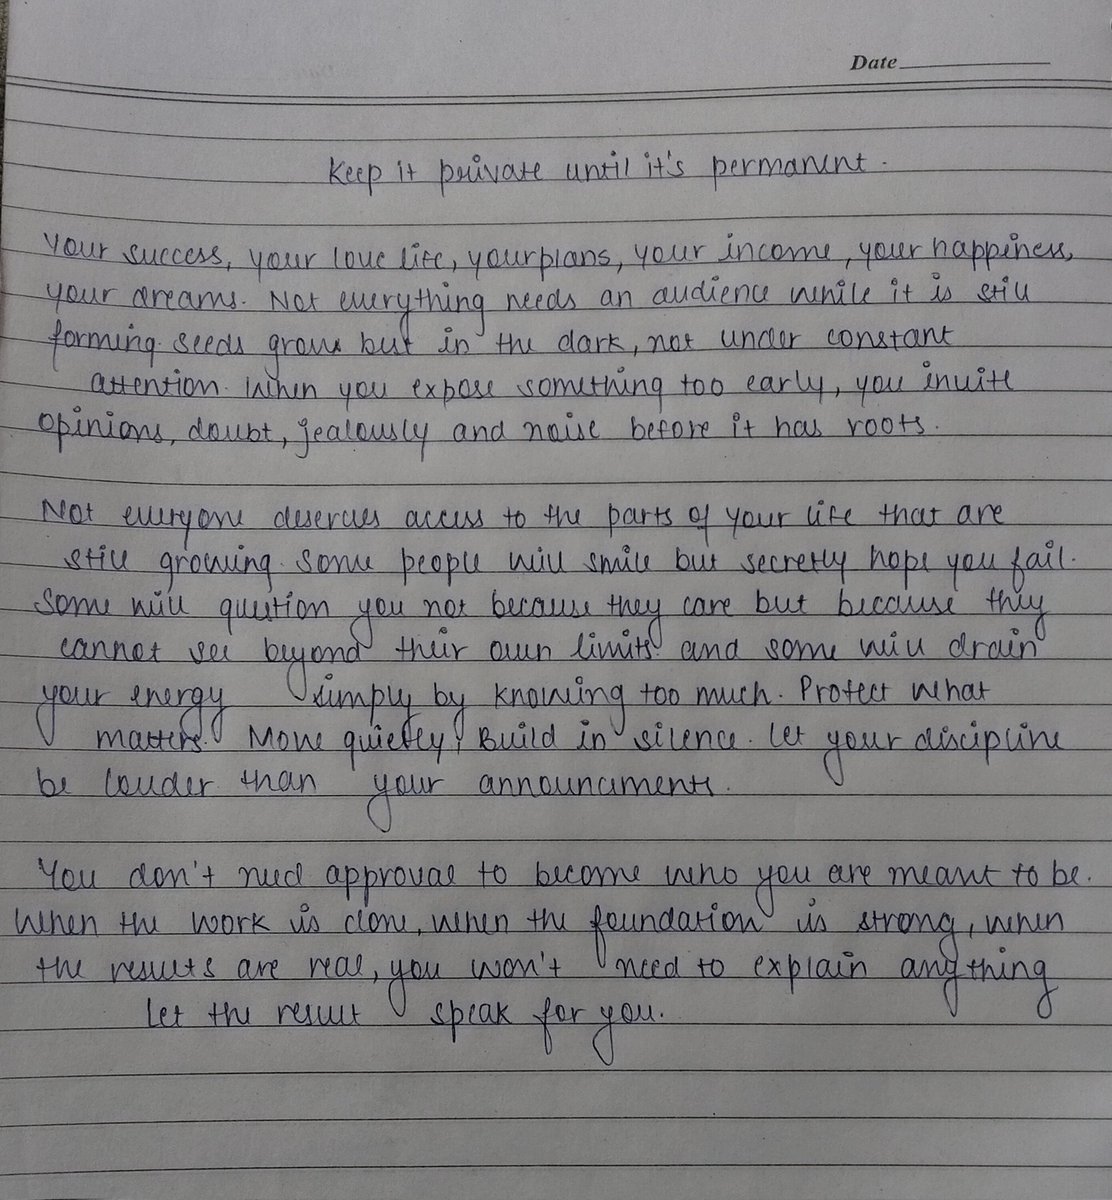 Date
Keep it private until it's permanent.
Your success, your love life, your plans, your income, your happiness,
your dreams. Not everything needs an audience while it is still
forming. Seeds grow but in the dark, not under constant
attention. When you expose something too early, you invite
opinions, doubt, jealously and noise before it has roots.
Not everyone deserves access to the parts of your life that are
still growing. Some people will smile but secretly hope you fail.
Some will question you not because they care but because they
cannot see beyond their own limits and some will drain
your energy simply by knowing too much. Protect what
matters. Move quietly, Build in silence. Let your discipline
be louder than your announcments.
You don't need approval to become who you are meant to be.
When the work is done, when the foundation is strong, when
the results are real, you won't need to explain anything
let the result speak for you.